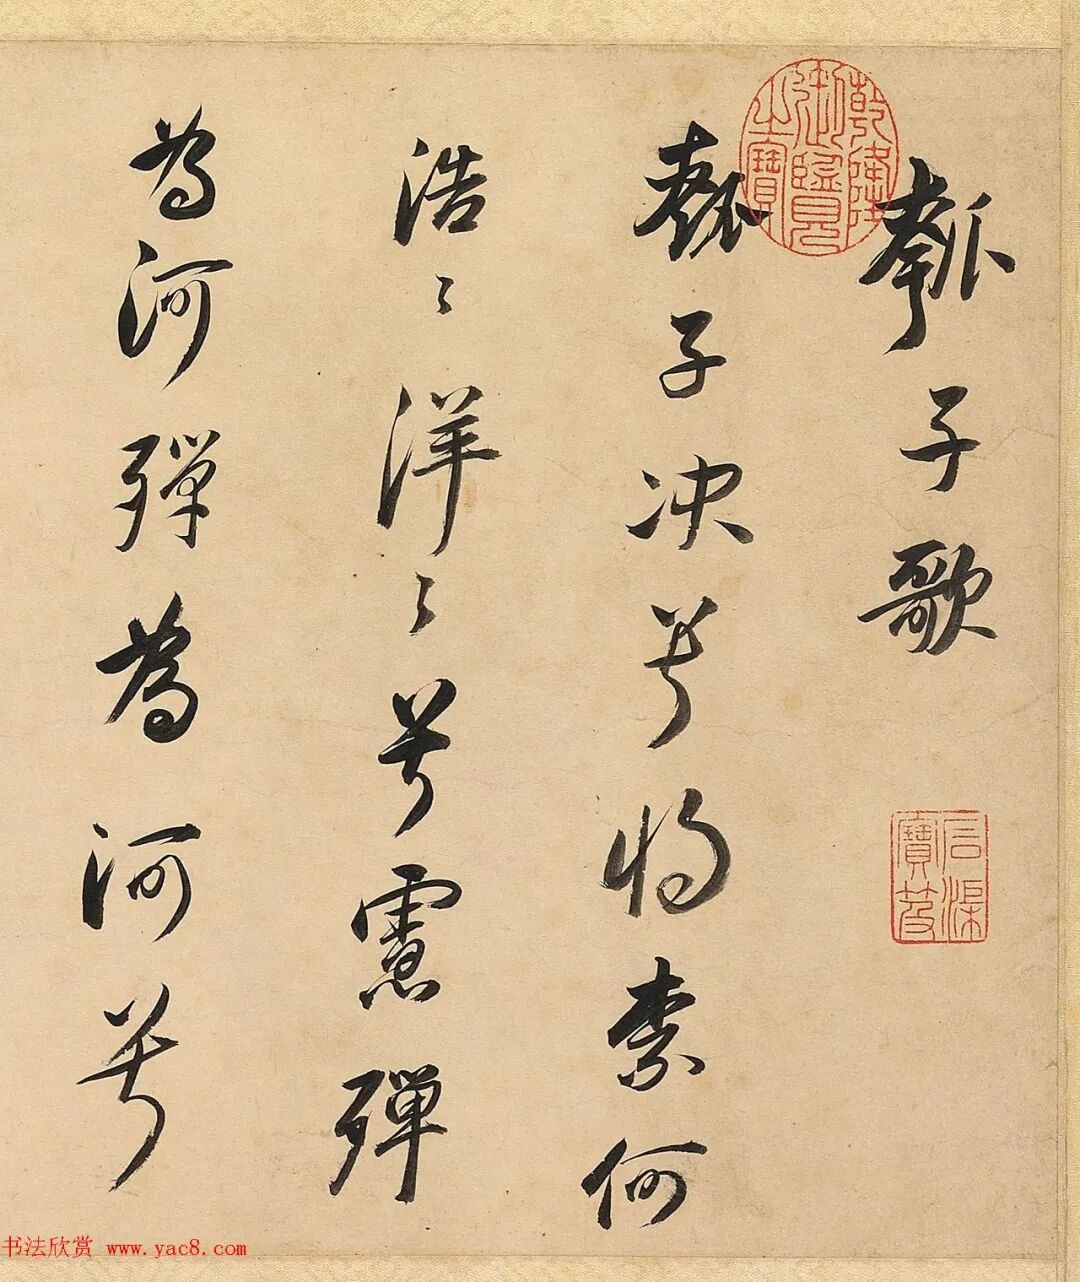 瓠子歌
瓠子决兮将柰何
浩〻洋〻兮慮殫
為河殫為河兮
乾隆御覽之寶
石渠寶笈
书法欣赏 www.yac8.com